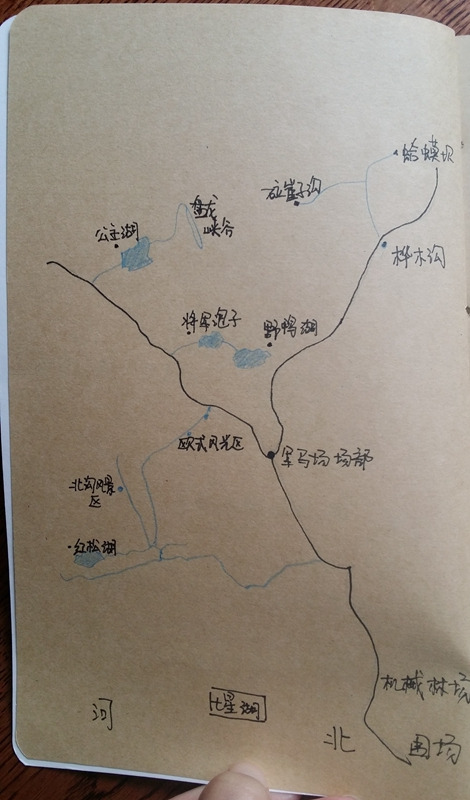 蛤蟆坝
砬崖子沟
盘龙
峡谷
公主湖
桦木沟
将军泡子
野鸭湖
欧式风光区
军马场场部
北沟风景
区
红松湖
机械林场
河
七星湖
北
围场